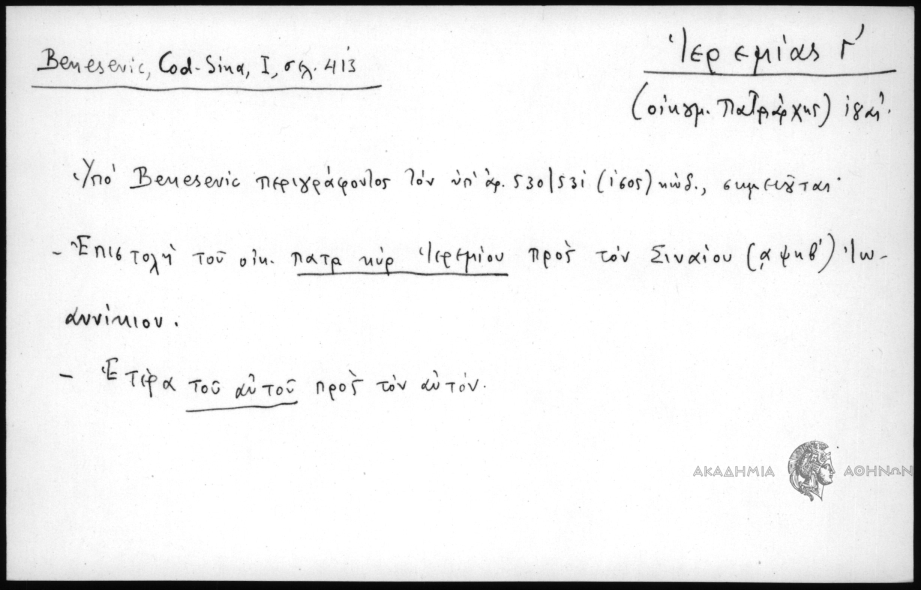 Benesevic, Cod. Sina, I, σελ. 413
Ἱερεμίας Γ΄
(οἰκουμ. Πατριάρχης) ιη΄ αἰ.
Ὑπὸ Benesevic περιγράφοντος τὸν ὑπ' ἀρ. 530/531 (1505) κώδ., σημειοῦται
- Ἐπιστολὴ τοῦ οἰκ. πατρ κὺρ Ἱερεμίου πρὸς τὸν Σιναίου (͵αψκβ΄) Ἰω-
αννίκιον.
- Ἑτέρα τοῦ αὐτοῦ πρὸς τὸν αὐτόν.
ΑΚΑΔΗΜΙΑ ΑΘΗΝΩΝ